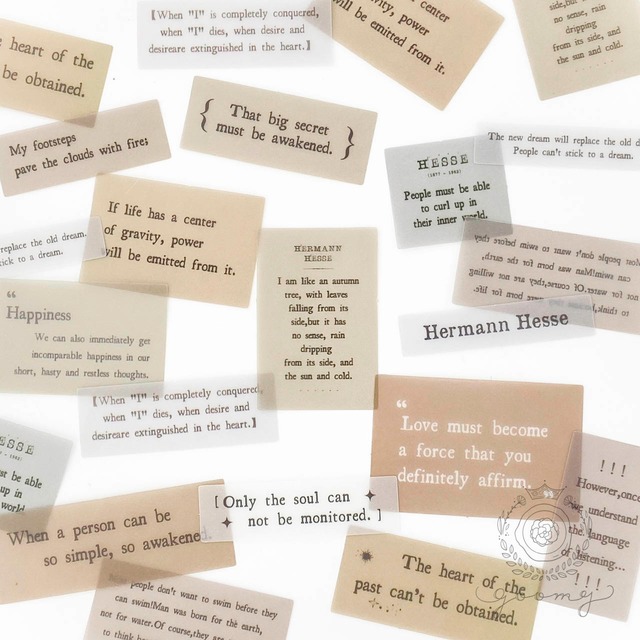 【When "I" is completely conquered,
when "I" dies, when desire and
desireare extinguished in the heart.】
vity, power
will be emitted from it.
center
side,but it
no sense, rain
dripping
from its side, and
the sun and cold.
heart of the
be obtained.
My footsteps
pave the clouds with fire;
{ That big secret
must be awakened. }
HESSE
(1877 - 1962)
People must be able
to curl up in
their inner world.
The new dream will replace the old d
People can't stick to a dream.
If life has a center
of gravity, power
will be emitted from it.
replace the old dream.
stick to a dream.
HERMANN
HESSE
I am like an autumn
tree, with leaves
falling from its
side,but it has
no sense, rain
dripping
from its side, and
the sun and cold.
Most people don't want to swim before they
can swim!Man was born for the earth,
not for water.Of course,they are not willing
to think,
were born for life.
“
Happiness
We can also immediately get
incomparable happiness in our
short, hasty and restless thoughts.
Hermann Hesse
【When "I" is completely conquered,
when "I" dies, when desire and
desireare extinguished in the heart.】
“
Love must become
a force that you
definitely affirm.
”
ESSE
st be able
up in
world
!!!
However,once
we understand
the language
of listening...
!!!
When a person can be
so simple, so awakened.
[Only the soul can
not be monitored.]
The heart of the
past can't be obtained.
people don't want to swim before they
can swim!Man was born for the earth,
not for water.Of course,they are
to think
goomej